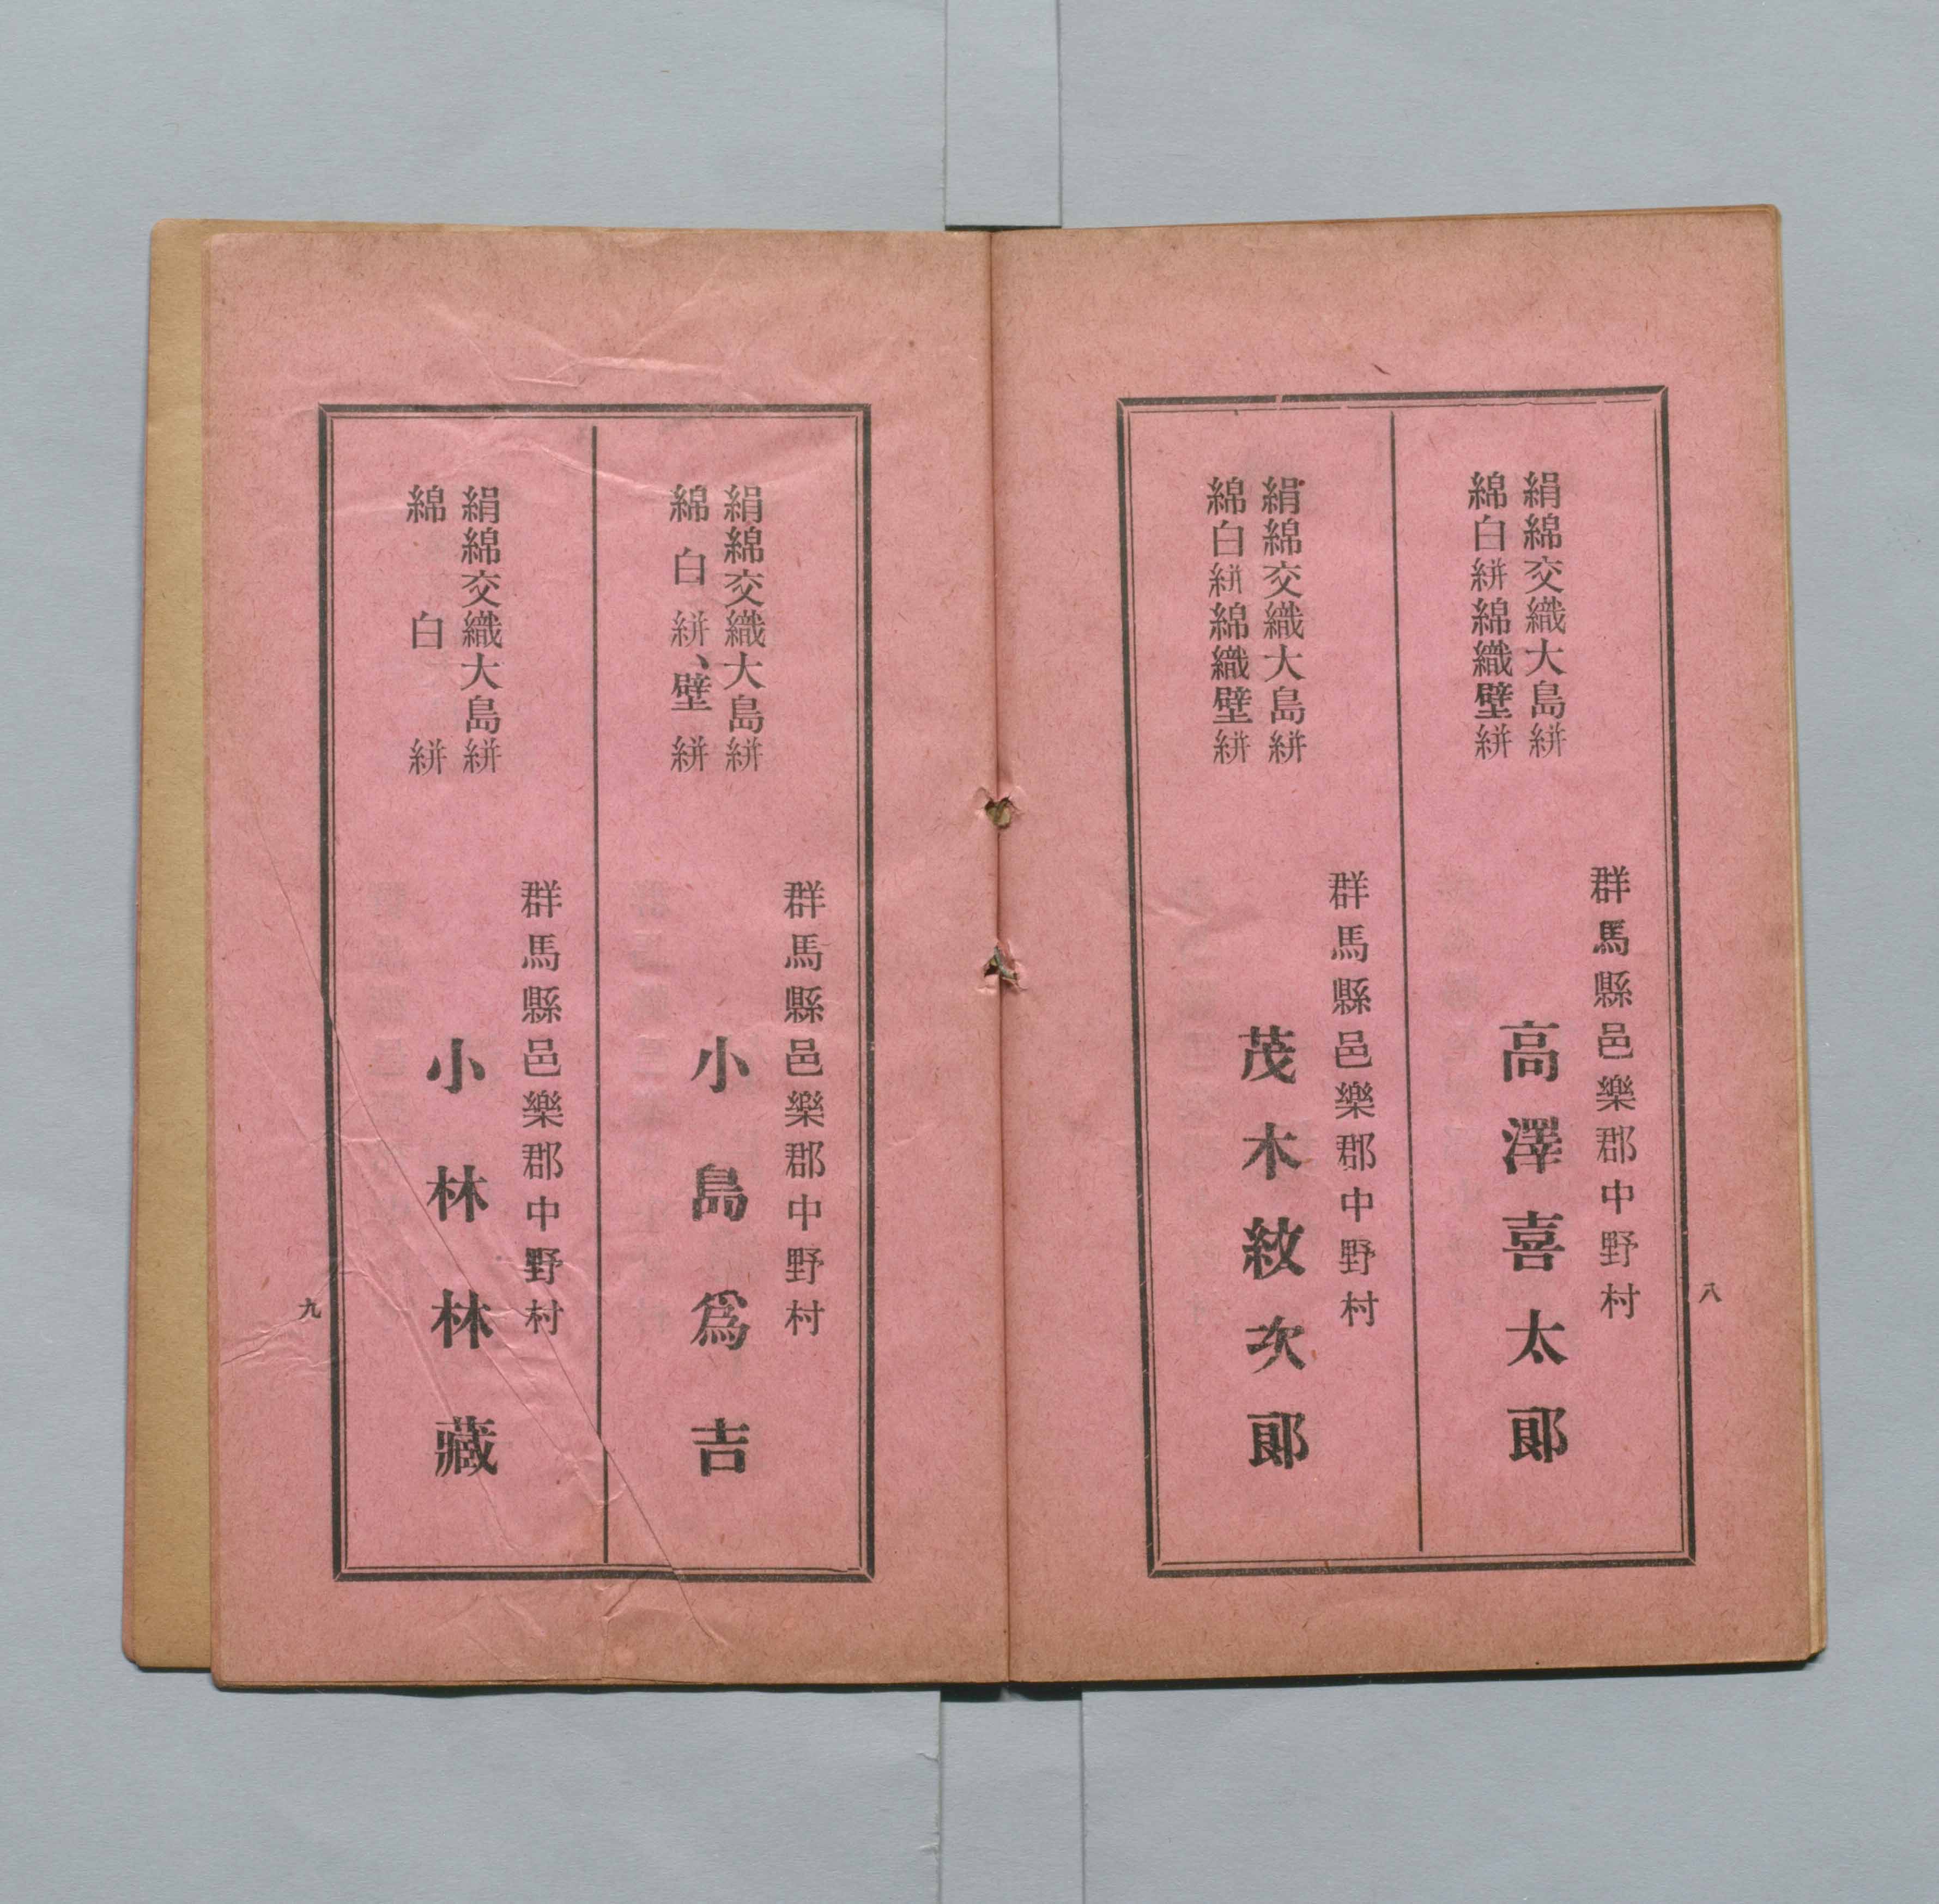 群馬縣邑樂郡中野村
絹綿交織大島絣
綿白絣綿織壁絣
高澤喜太郎
群馬縣邑樂郡中野村
絹綿交織大島絣
綿白絣綿織壁絣
茂木紋次郎
八
群馬縣邑樂郡中野村
絹綿交織大島絣
綿白絣、壁絣
小島爲吉
群馬縣邑樂郡中野村
絹綿交織大島絣
綿白絣
小林林藏
九